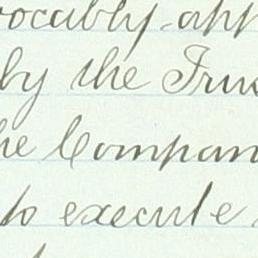 vocably app
by the Trus
he Compan
to execute